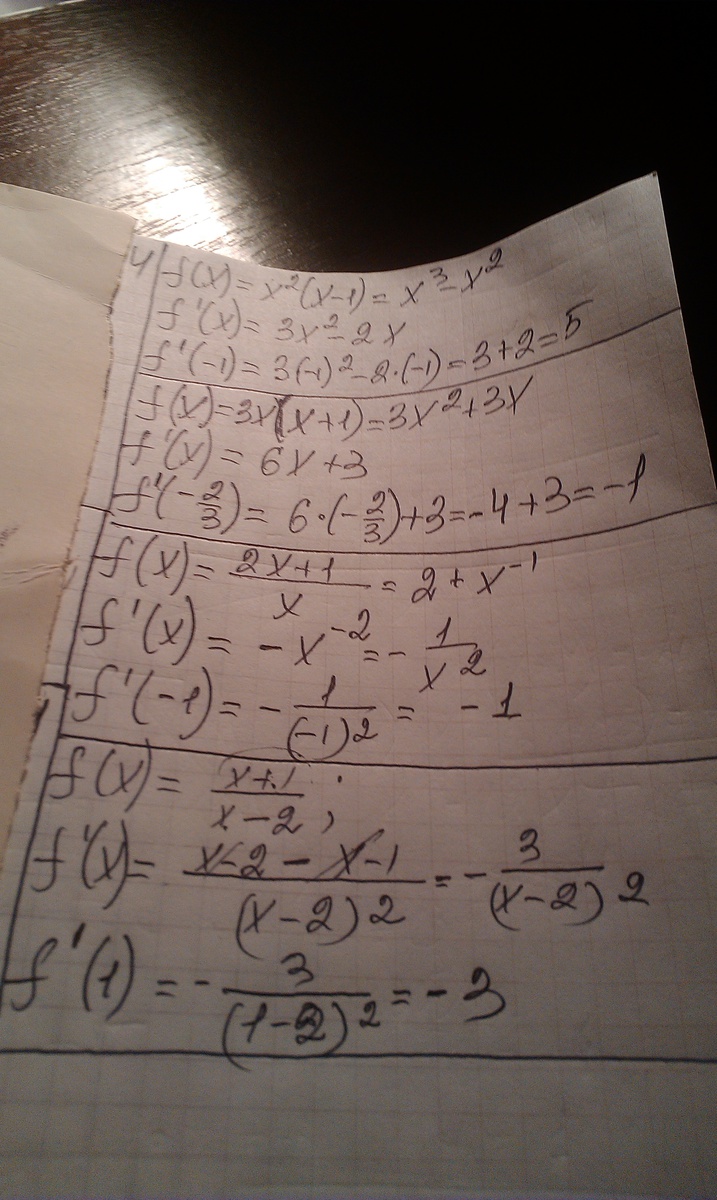 4) f(x) = x²(x-1) = x³-x²
f'(x) = 3x²-2x
f'(-1) = 3(-1)²-2·(-1)=3+2=5
f(x)=3x(x+1)=3x²+3x
f'(x) = 6x+3
f'(-2/3) = 6·(-2/3)+3=-4+3=-1
f(x) = (2x+1)/x = 2+x⁻¹
f'(x) = -x⁻² = -1/x²
f'(-1) = -1/(-1)² = -1
f(x) = (x+1)/(x-2);
f'(x) = (x-2-x-1)/(x-2)² = -3/(x-2)²
f'(1) = -3/(1-2)² = -3